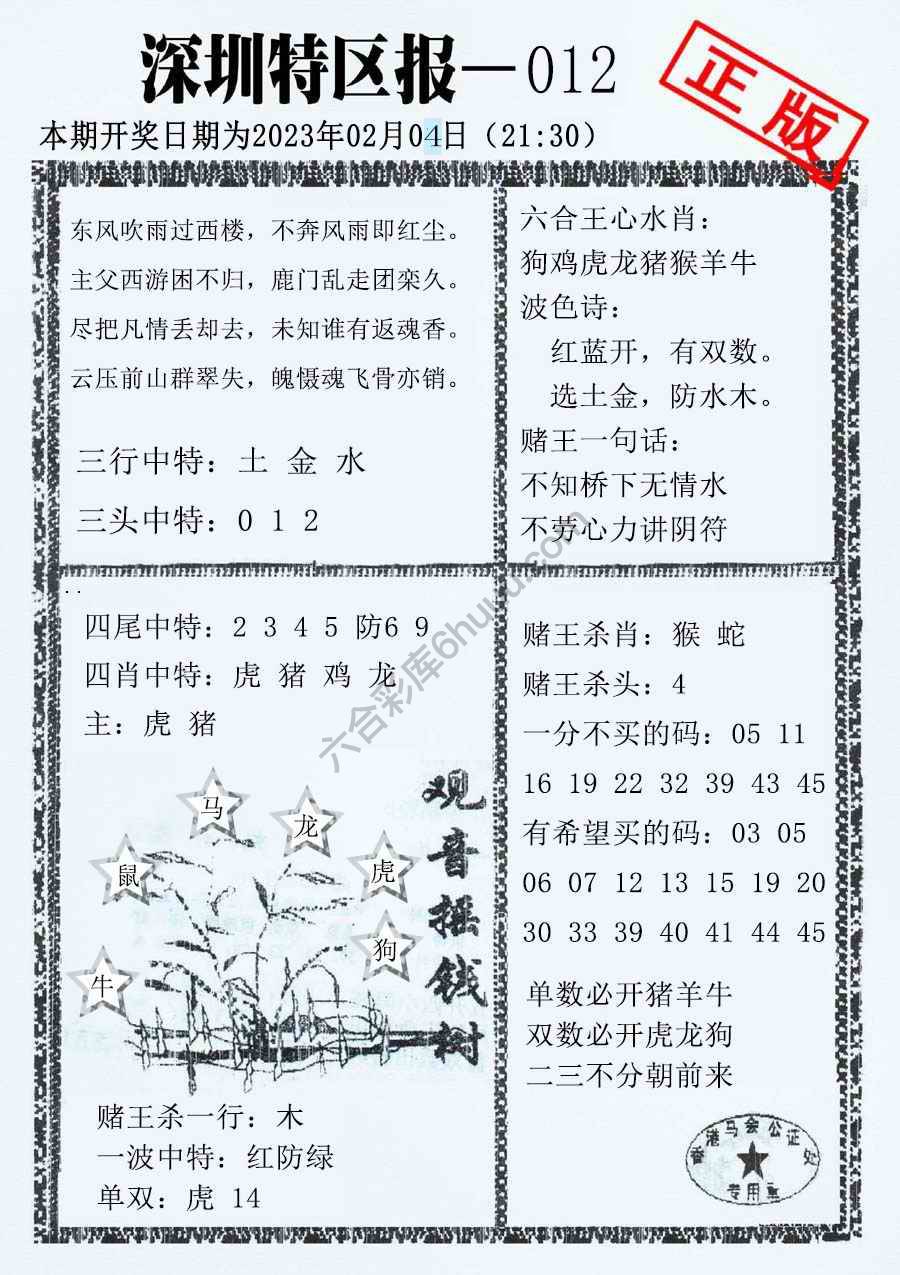 深圳特区报—012
正版
本期开奖日期为2023年02月04日（21:30）
东风吹雨过西楼，不奔风雨即红尘。
主父西游困不归，鹿门乱走团栾久。
尽把凡情丢却去，未知谁有返魂香。
云压前山群翠失，魄慑魂飞骨亦销。
三行中特：土 金 水
三头中特：0 1 2
六合王心水肖：
狗鸡虎龙猪猴羊牛
波色诗：
红蓝开，有双数。
选土金，防水木。
赌王一句话：
不知桥下无情水
不劳心力讲阴符
四尾中特：2 3 4 5 防6 9
四肖中特：虎 猪 鸡 龙
主：虎 猪
马
龙
鼠
虎
狗
牛
观音摇钱树
赌王杀一行：木
一波中特：红防绿
单双：虎 14
赌王杀肖：猴 蛇
赌王杀头：4
一分不买的码：05 11
16 19 22 32 39 43 45
有希望买的码：03 05
06 07 12 13 15 19 20
30 33 39 40 41 44 45
单数必开猪羊牛
双数必开虎龙狗
二三不分朝前来
香港马会公证处
专用章
六合彩库6huku.com